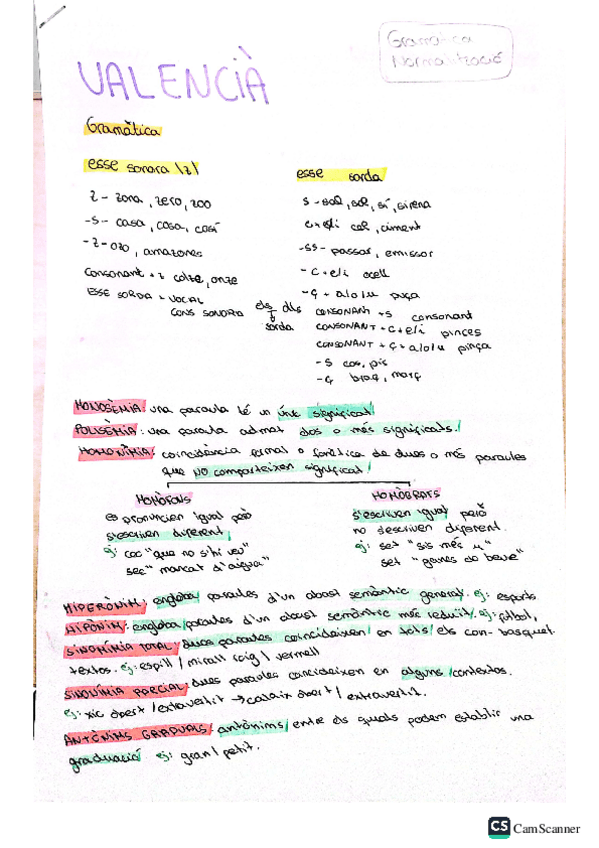 Gramàtica
Normalització
VALENCIÀ
Gramàtica
esse sonora /z/
z - zona, zero, zoo
-s- casa, cosa, casi
-z- ozo, amazones
consonant + z colze, onze
ESSE SORDA + VOCAL
CONS SONORA
els dits
sorda
esse sorda
s - sol, sal, sí, sirena
c + e/i cel, ciment
-ss- passar, emissor
- c + e/i ocell
- ç + a/o/u puça
CONSONANT + S consonant
CONSONANT + C + e/i pinces
CONSONANT + ç + a/o/u pinça
- s cos, pis
- ç braç, març
MONOSÈMIA: una paraula té un únic significat
POLISÈMIA: una paraula admet dos o més significats.
HOMONÍMIA: coincidència formal o fonètica de dues o més paraules
que NO comparteixen significat!
HOMÒFONS
es pronuncien igual però
s'escriven diferent.
ej: cec "que no s'hi veu"
sec "mancat d'aigua"
HOMÒGRAFS
s'escriven igual però
no s'escriven diferent.
ej: set "sis més u"
set "ganes de beure"
HIPERÒNIM: engloba paraules d'un abast semàntic general. ej: esports
HIPÒNIM: engloba paraules d'un abast semàntic més reduït. ej: futbol,
basquet.
SINONÍMIA TOTAL: dues paraules coincideixen en tots els con-
textos. ej: espill / mirall roig / vermell
SINONÍMIA PARCIAL: dues paraules coincideixen en alguns contextos.
ej: xic obert / extravertit → calaix obert / extravertit.
ANTÒNIMS GRADUALS: antònims entre els quals podem establir una
graduació ej: gran / petit.
CS CamScanner